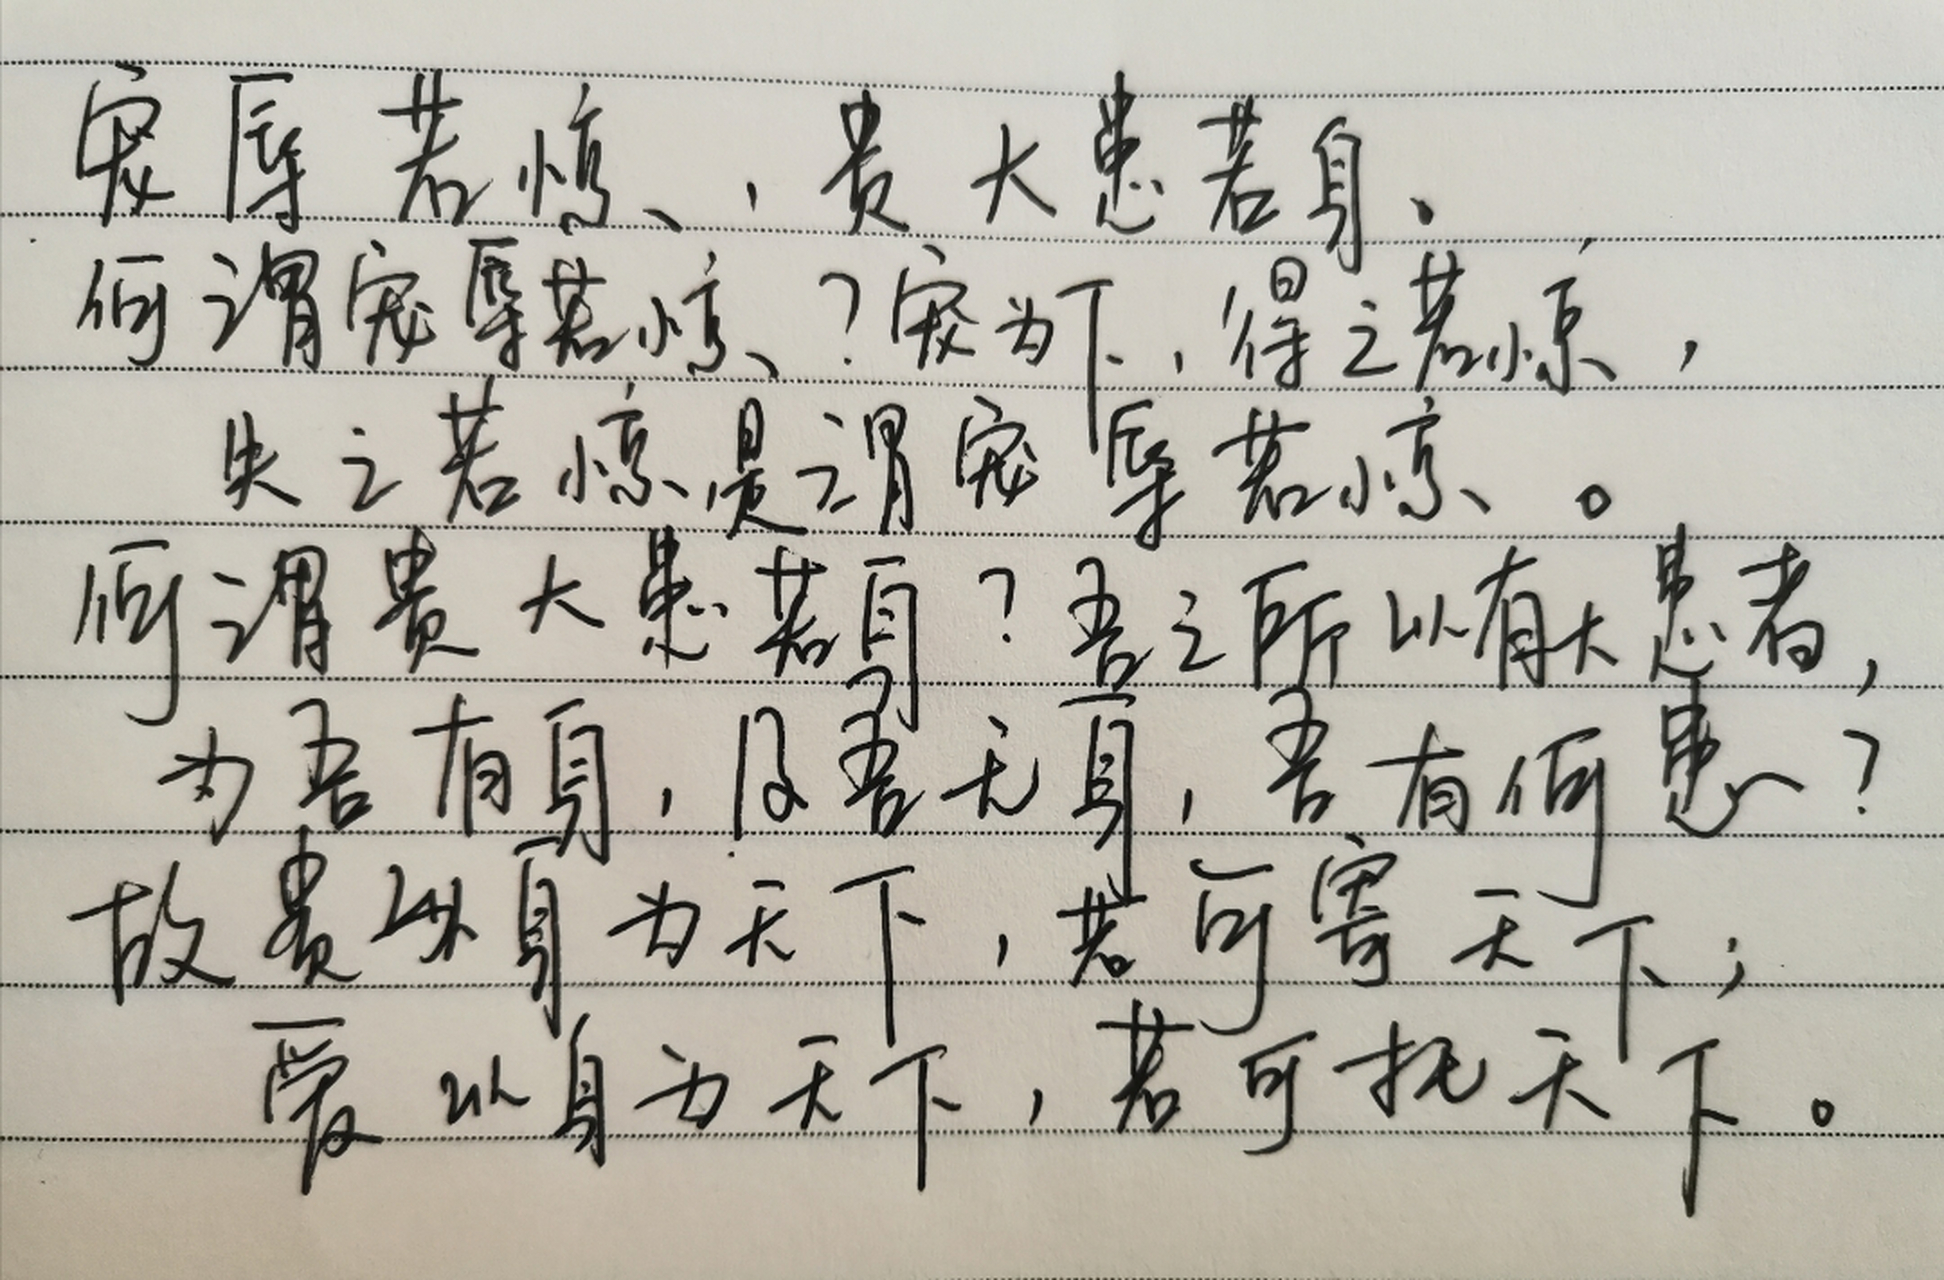 宠辱若惊,贵大患若身、
何谓宠辱若惊?宠为下,得之若惊,
失之若惊是谓宠辱若惊。
何谓贵大患若身?吾之所以有大患者,
为吾有身,及吾无身,吾有何患?
故贵以身为天下,若可寄天下;
爱以身为天下,若可托天下。